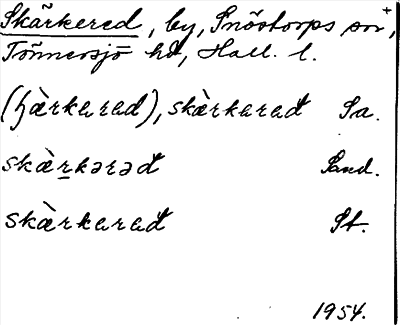 Skärkered, by, Snöstorps sn,
Tönnersjö hd, Hall. l.
(ʃɛ̀rkarad), skɛ̀rkarađ Sa.
skɛ̀rkərəđ Sand.
skɛ̀rkarađ St.
1954.